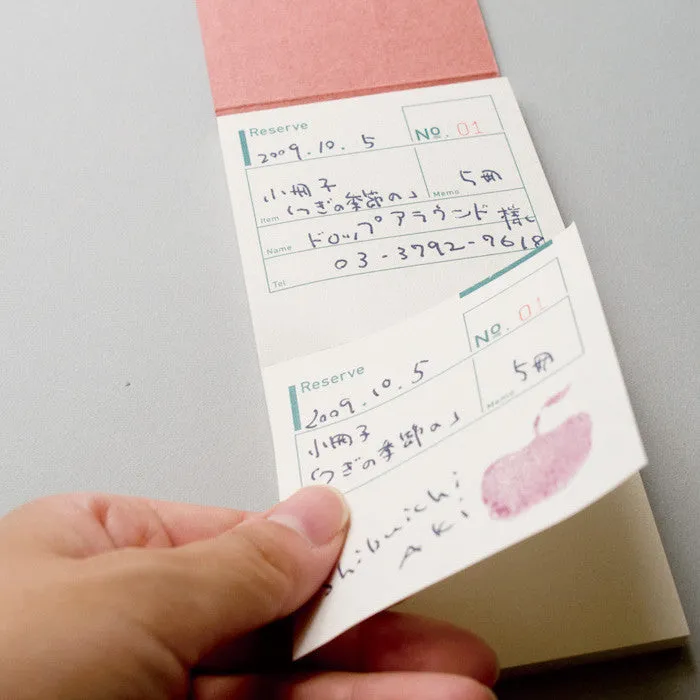 Reserve
No. 01
2009.10.5
小冊子
「つぎの季節の」
5冊
Item
Memo
ドロップアラウンド 様
Name
03-3792-7618
Tel
Reserve
No. 01
2009.10.5
小冊子
「つぎの季節の」
5冊
Memo
AKi